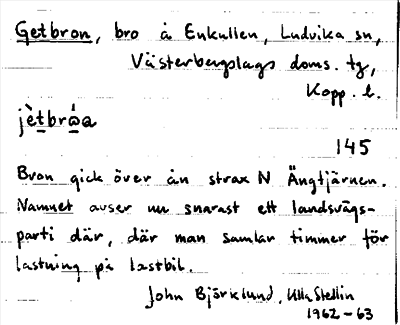 Getbron, bro å Enkullen, Ludvika sn,
Västerbergslags doms. tg,
Kopp. l.
jè̱tbrώ̱a
145
Bron gick över ån strax N Ängtjärnen.
Namnet avser nu snarast ett landsvägs-
parti där, där man samlar timmer för
lastning på lastbil.
John Björklund, Ulla Stellin
1962-63